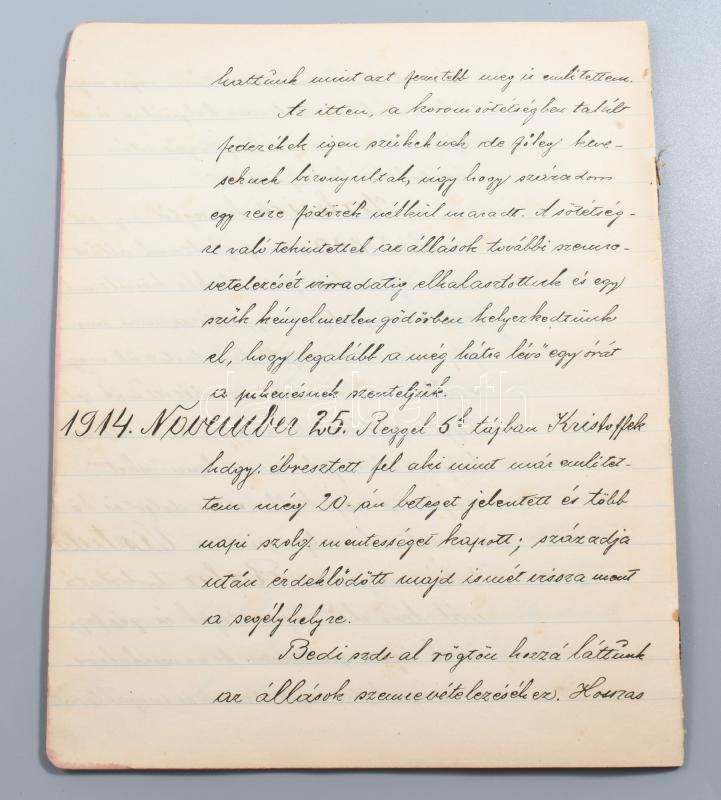 hattunk mint azt fentebb meg is emlitettem.
Az itten, a koromsötétségben talált
fedezékek igen szüknek de főleg keve-
seknek bizonyultak, úgy hogy századom
egy része födözék nélkül maradt. A sötétség-
re való tekintettel az állások további szemre-
vetelezését virradatig elhalasztottuk és egy
szük kényelmetlen gödörben helyezkedtünk
el, hogy legalább a még hátra lévő egy órát
a pihenésnek szenteljük.
1914. November 25. Reggel 5h tájban Kristoffek
hdgy. ébresztett fel aki mint már emlitet-
tem még 20-án beteget jelentett és több
napi szolg. mentességet kapott; századja
után érdeklődött majd ismét vissza ment
a segélyhelyre.
Bedi szds-al rögtön hozzá láttunk
az állások szemrevételezéséhez. Hosszas
darabanth